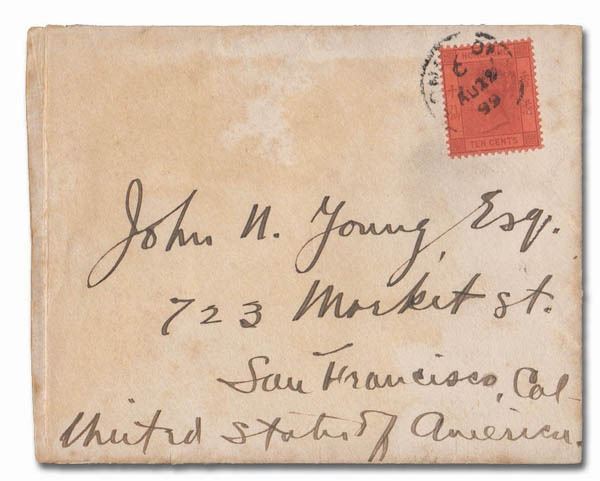 C
AU 12
99
TEN CENTS
John N. Young, Esq.
723 Market St.
San Francisco, Cal-
United States of America.